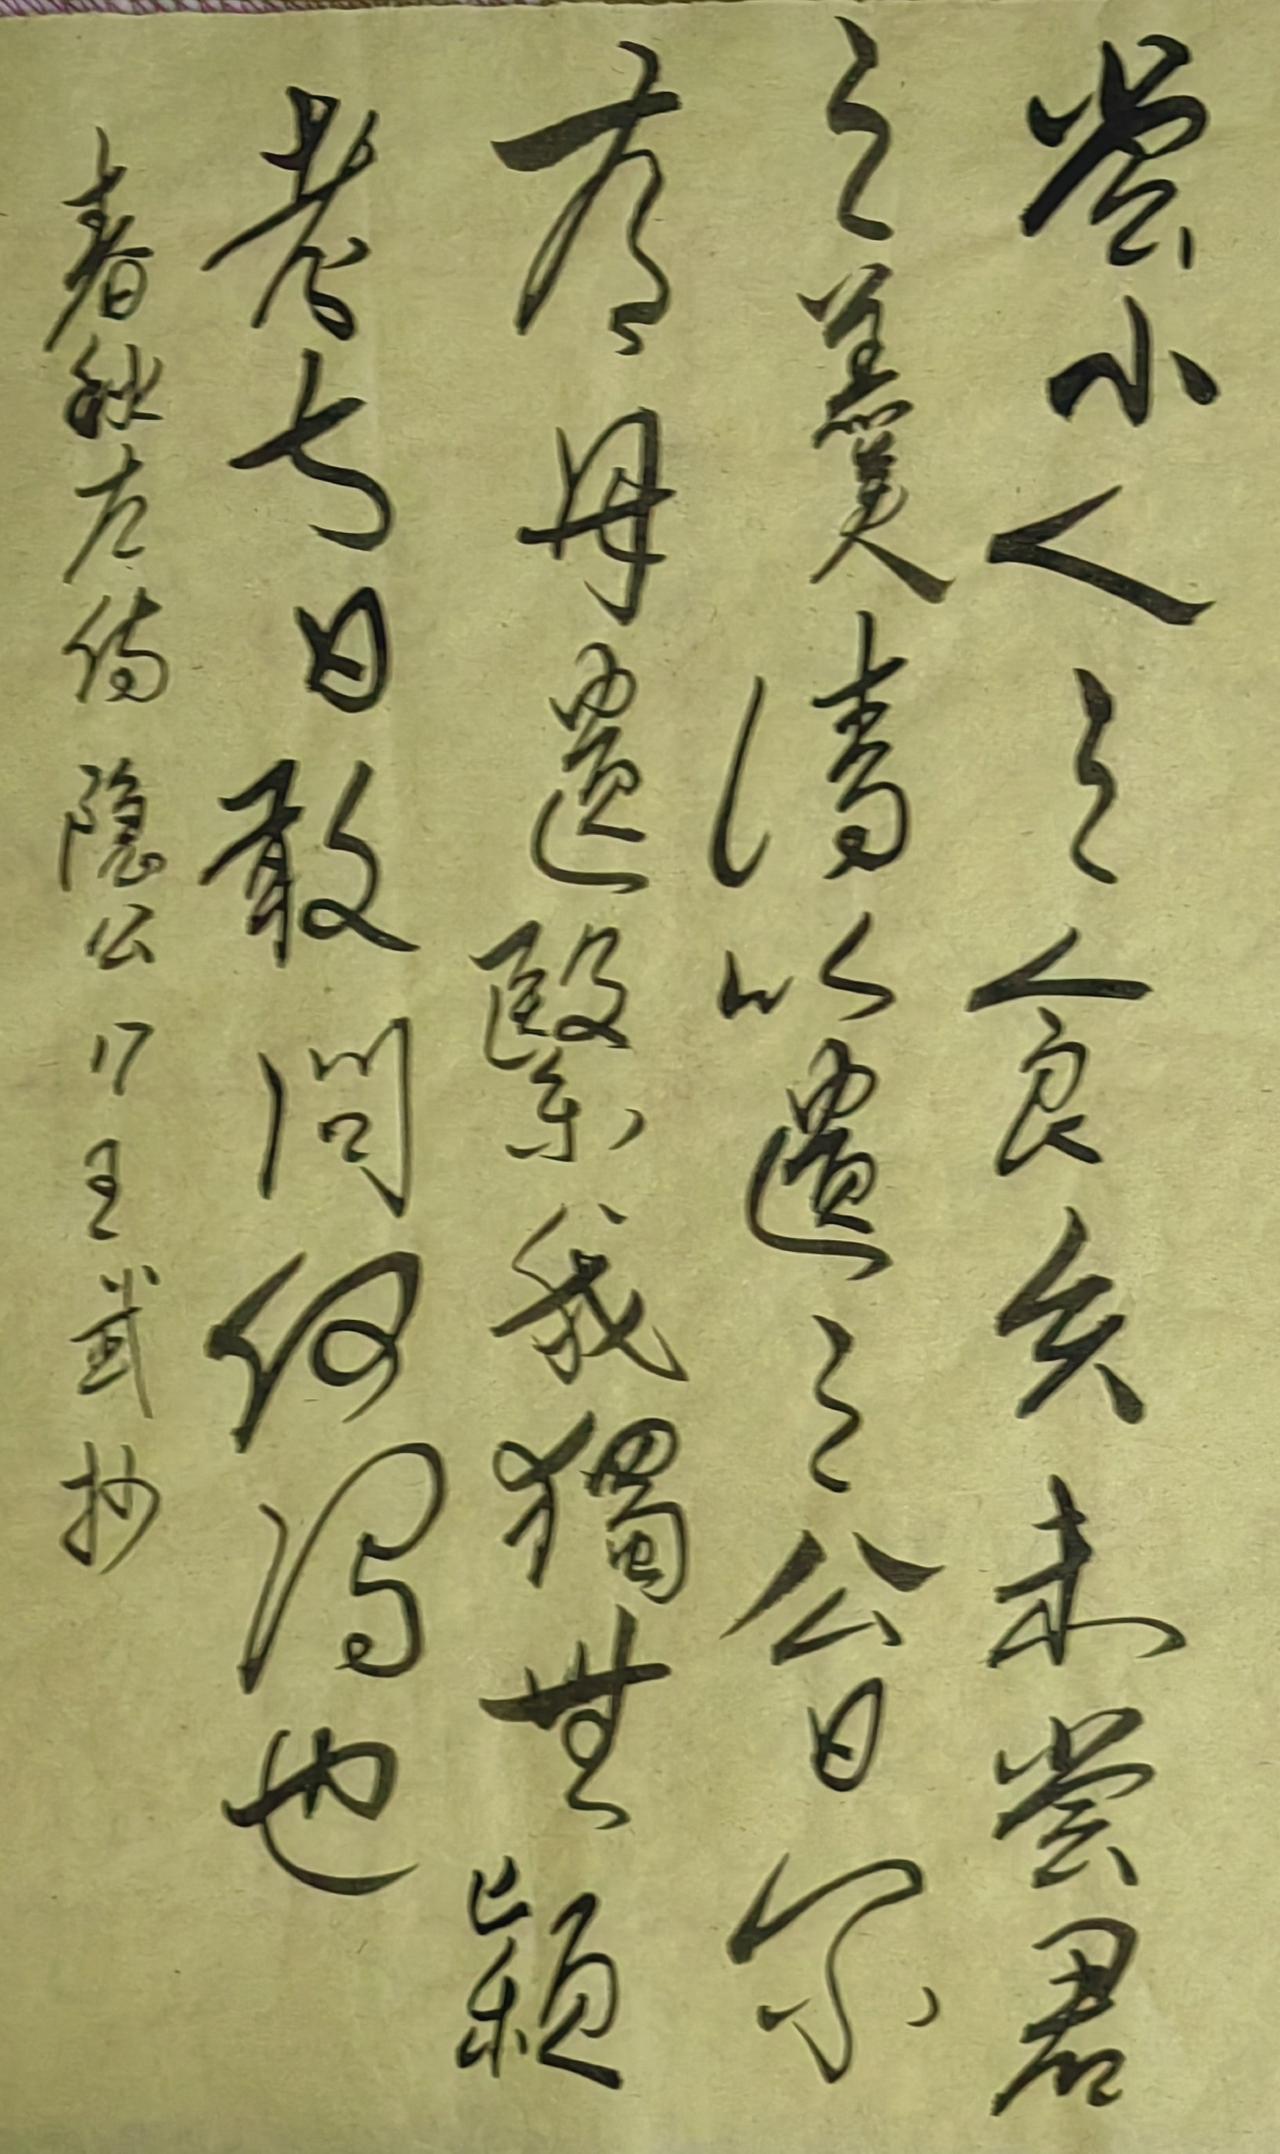 嘗小人之食矣未嘗君
之羹請以遺之公曰尔
有母遺繄我獨無潁
考叔曰敢問何謂也
春秋左傳隐公17王武抄